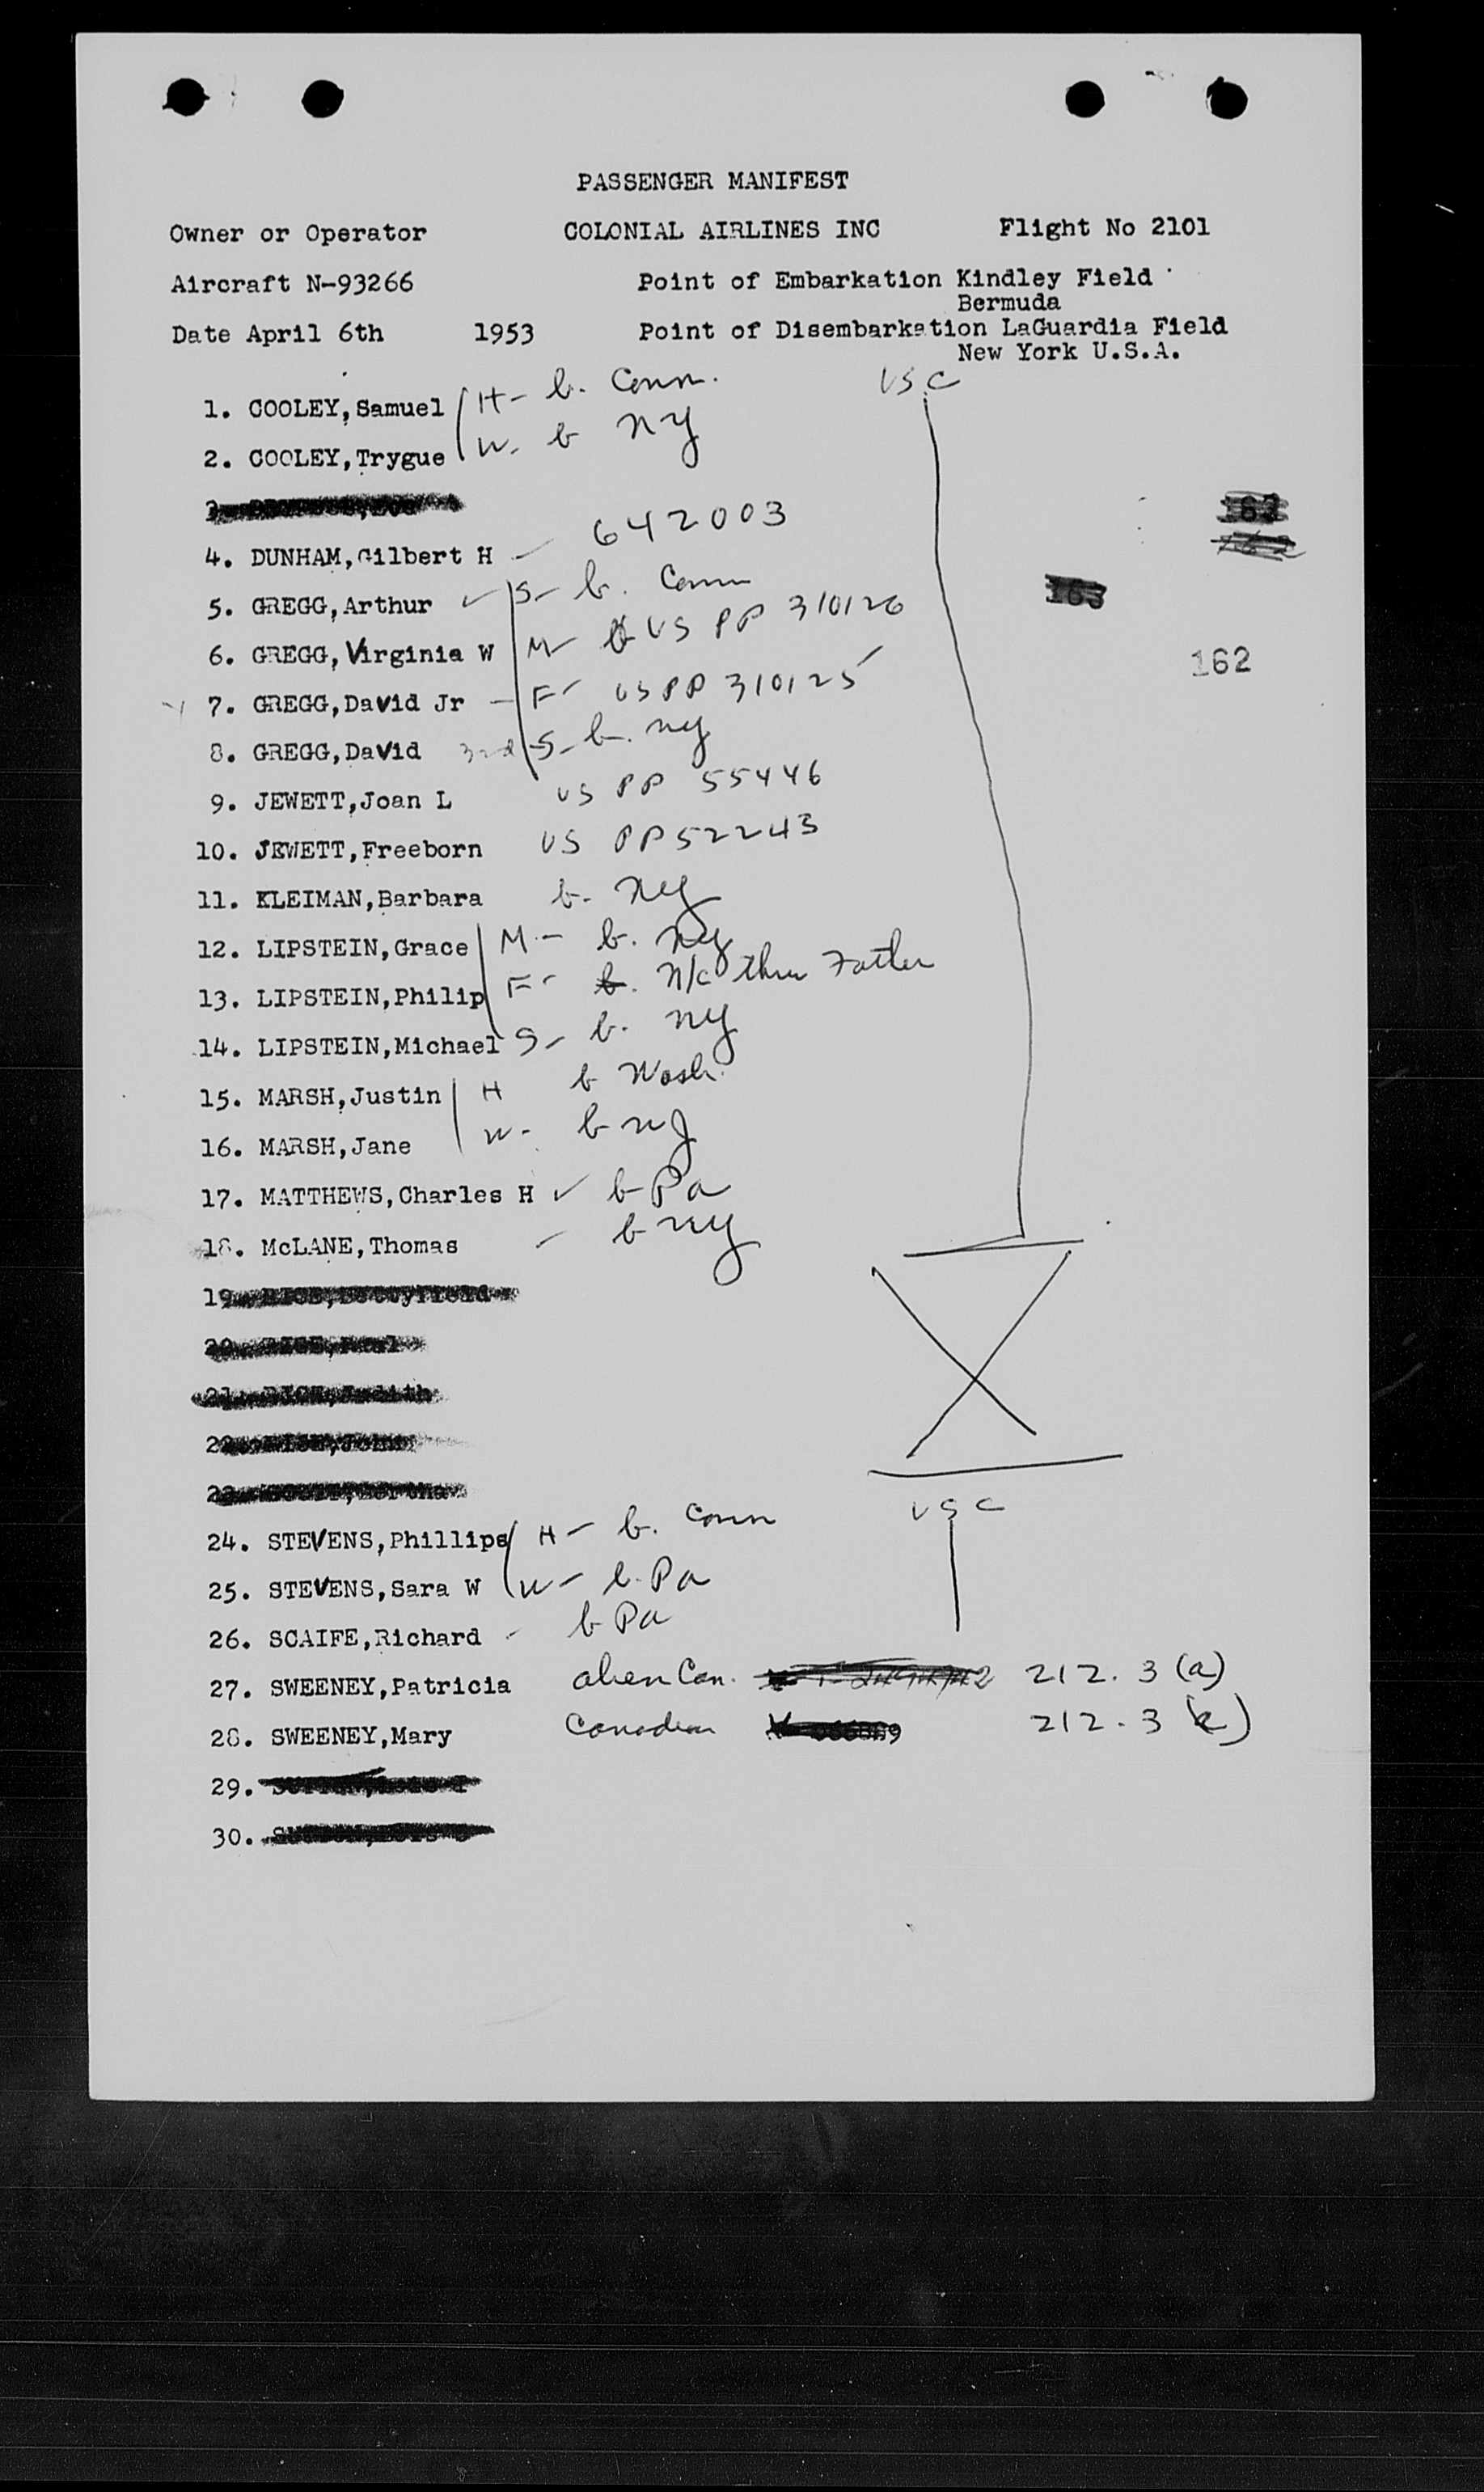 PASSENGER MANIFEST
Owner or Operator COLONIAL AIRLINES INC Flight No 2101
Aircraft N-93266 Point of Embarkation Kindley Field
Bermuda
Date April 6th 1953 Point of Disembarkation LaGuardia Field
New York U.S.A.
USC
1. COOLEY,Samuel H- b. Conn.
2. COOLEY,Trygue W. b NY
4. DUNHAM,Gilbert H - 642003
5. GREGG,Arthur S- b. Conn
163
6. GREGG,Virginia W M- US PP 310126
162
7. GREGG,David Jr - F- US PP 310125
8. GREGG,David 3rd S- b. NY
9. JEWETT,Joan L US PP 55446
10. JEWETT,Freeborn US PP 52243
11. KLEIMAN,Barbara b. NY
12. LIPSTEIN,Grace M- b. NY
13. LIPSTEIN,Philip F- b. N/C thru Father
14. LIPSTEIN,Michael S- b. NY
15. MARSH,Justin H b Wash.
16. MARSH,Jane W- b NJ
17. MATTHEWS,Charles H b Pa
18. McLANE,Thomas - b NY
19
USC
24. STEVENS,Phillips H- b. Conn
25. STEVENS,Sara W W- b. Pa
26. SCAIFE,Richard - b Pa
27. SWEENEY,Patricia alien Can. 212.3 (a)
28. SWEENEY,Mary Canadian 212.3
29.
30.